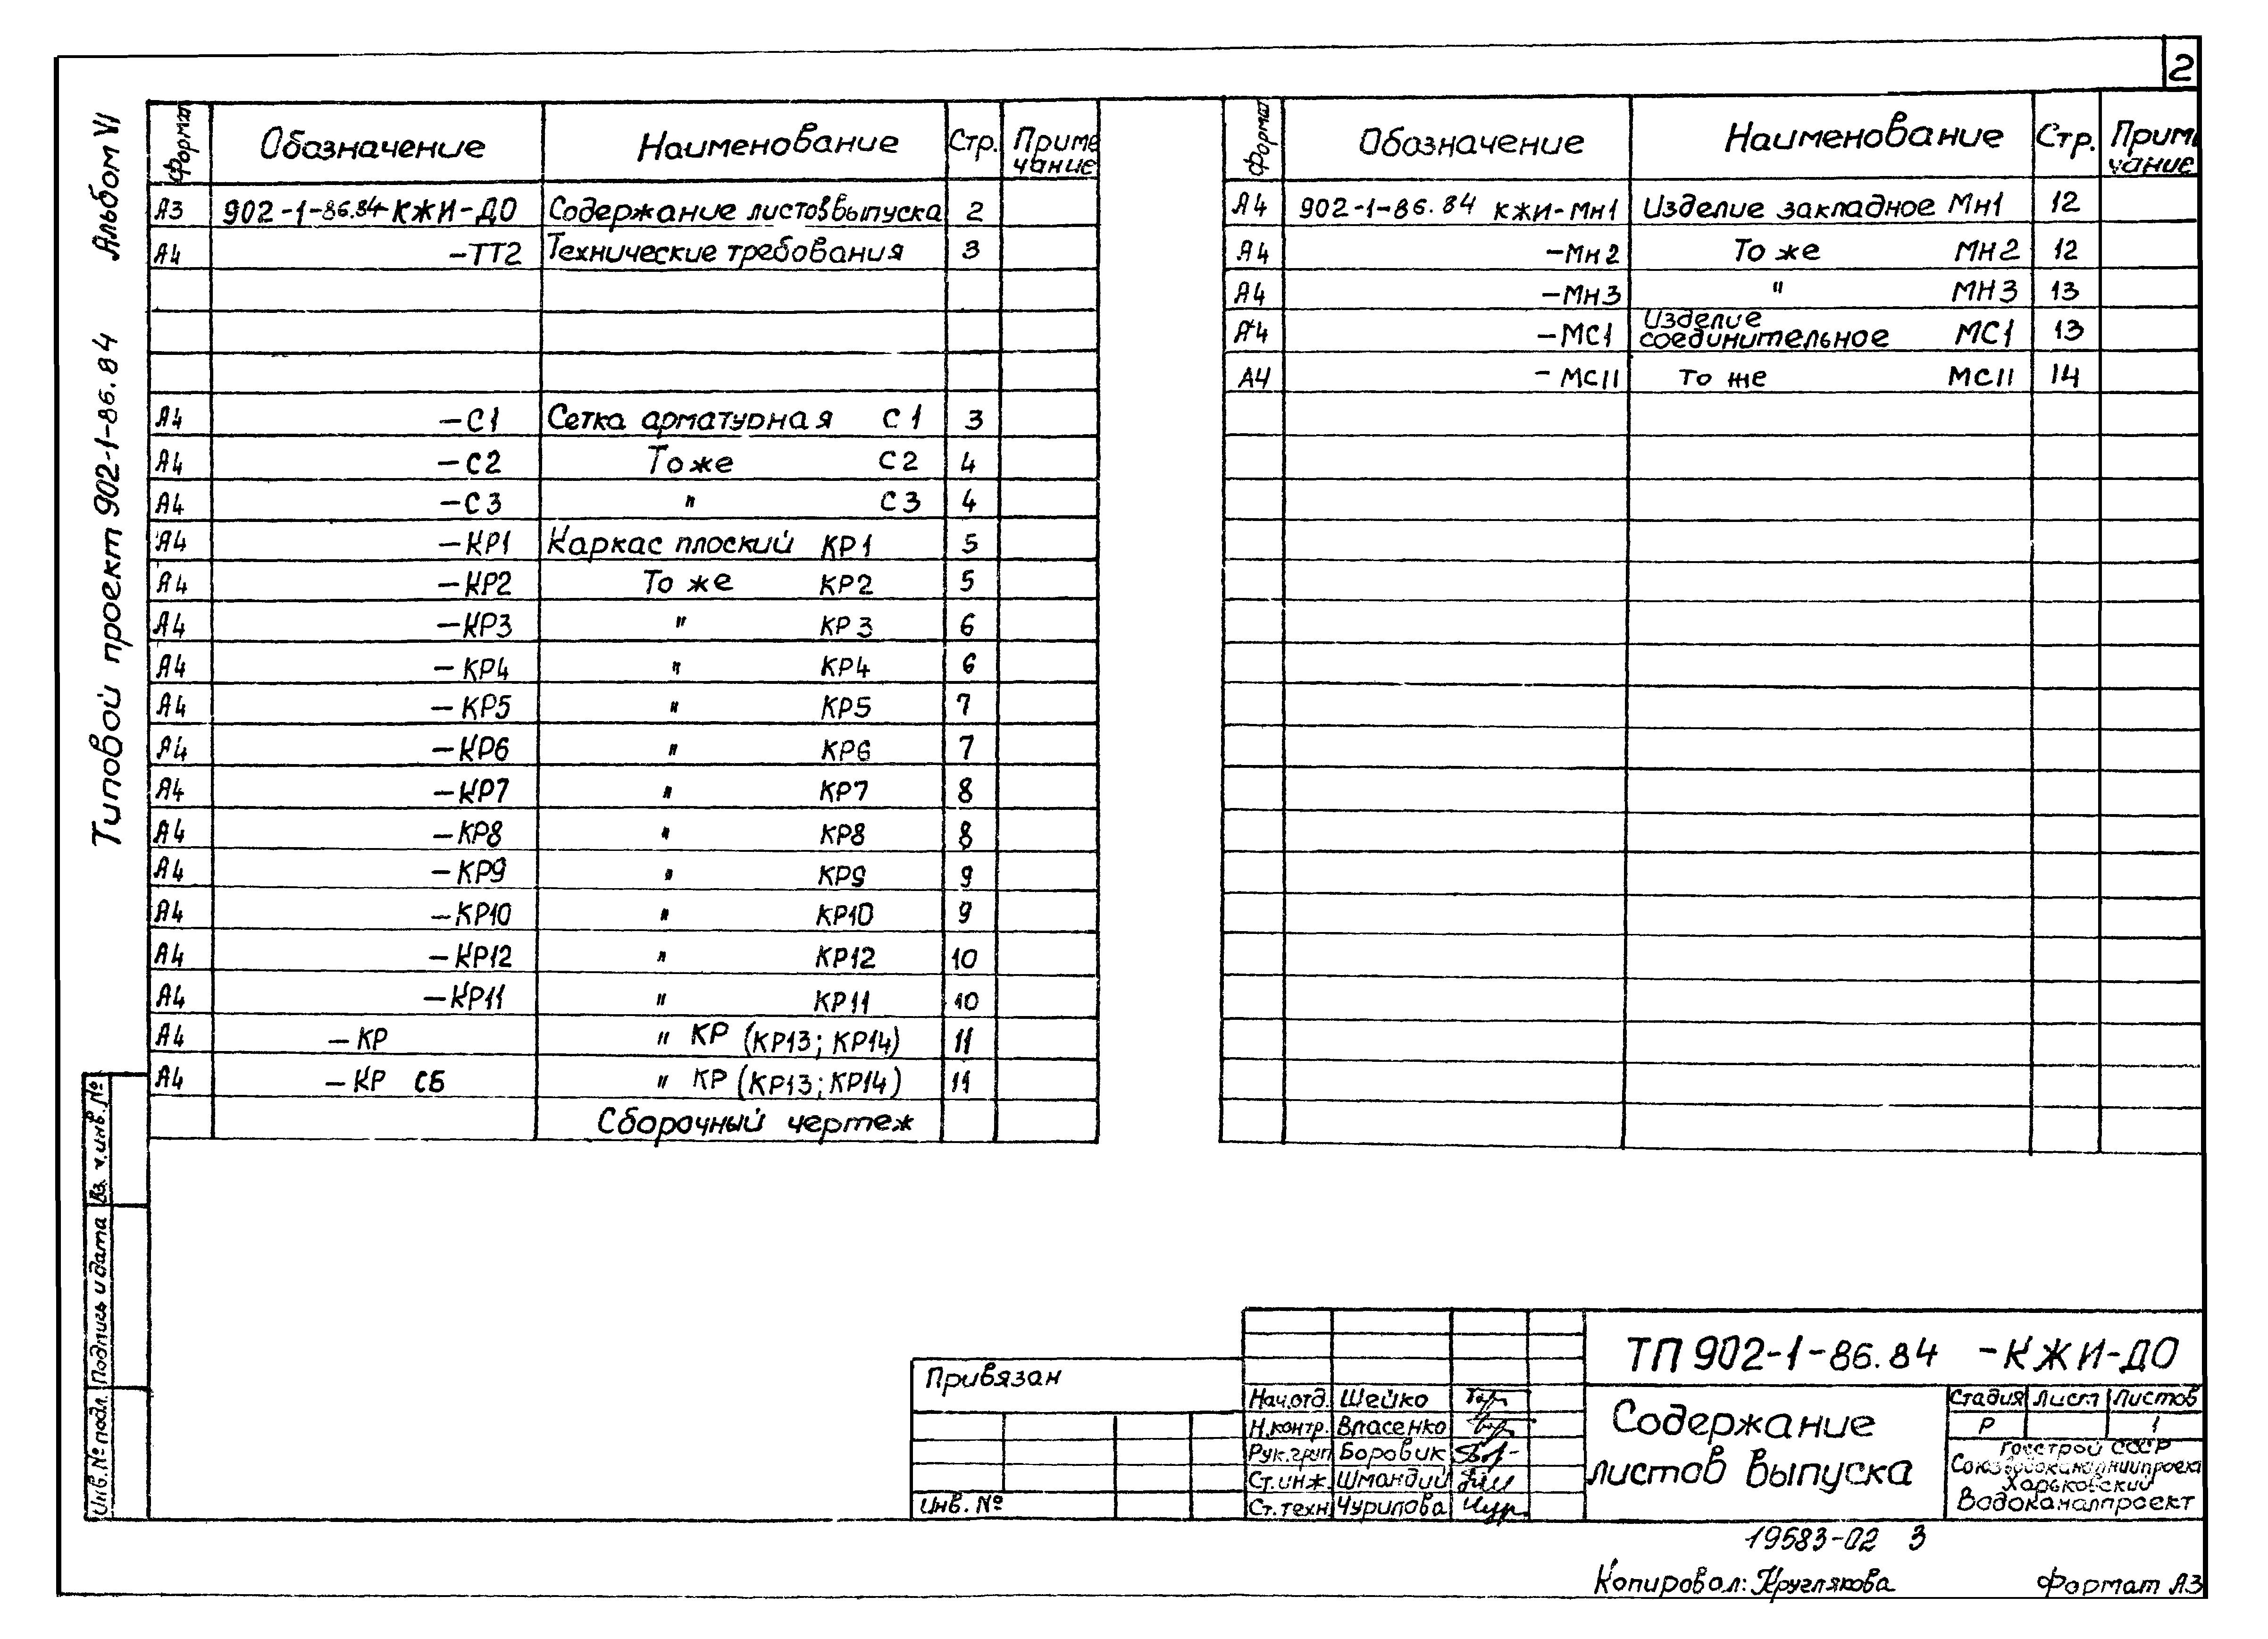 2
Альбом VI
Типовой проект 902-1-86.84
Формат Обозначение Наименование Стр. Приме
чание
А3 902-1-86.84-КЖИ-ДО Содержание листов выпуска 2
А4 -ТТ2 Технические требования 3
А4 -С1 Сетка арматурная С1 3
А4 -С2 То же С2 4
А4 -С3 " С3 4
А4 -КР1 Каркас плоский КР1 5
А4 -КР2 То же КР2 5
А4 -КР3 " КР3 6
А4 -КР4 " КР4 6
А4 -КР5 " КР5 7
А4 -КР6 " КР6 7
А4 -КР7 " КР7 8
А4 -КР8 " КР8 8
А4 -КР9 " КР9 9
А4 -КР10 " КР10 9
А4 -КР12 " КР12 10
А4 -КР11 " КР11 10
А4 -КР " КР (КР13; КР14) 11
А4 -КР СБ " КР (КР13; КР14) 11
Сборочный чертеж
Формат Обозначение Наименование Стр. Приме
чание
А4 902-1-86.84 КЖИ-Мн1 Изделие закладное Мн1 12
А4 -Мн2 То же МН2 12
А4 -Мн3 " МН3 13
Изделие
А4 -МС1 соединительное МС1 13
А4 -МС11 То же МС11 14
Инв. № подл. Подпись и дата Вз. инв. №
Привязан
Инв. №
ТП 902-1-86.84 -КЖИ-ДО
Нач.отд. Шейко
Н.контр. Власенко
Рук.груп Боровик
Ст.инж. Шмандий
Ст.техн. Чурилова
Содержание
листов выпуска
Стадия Лист Листов
Р 1
Госстрой СССР
Союзводоканалниипроект
Харьковский
Водоканалпроект
19583-02 3
Копировал: Круглякова Формат А3